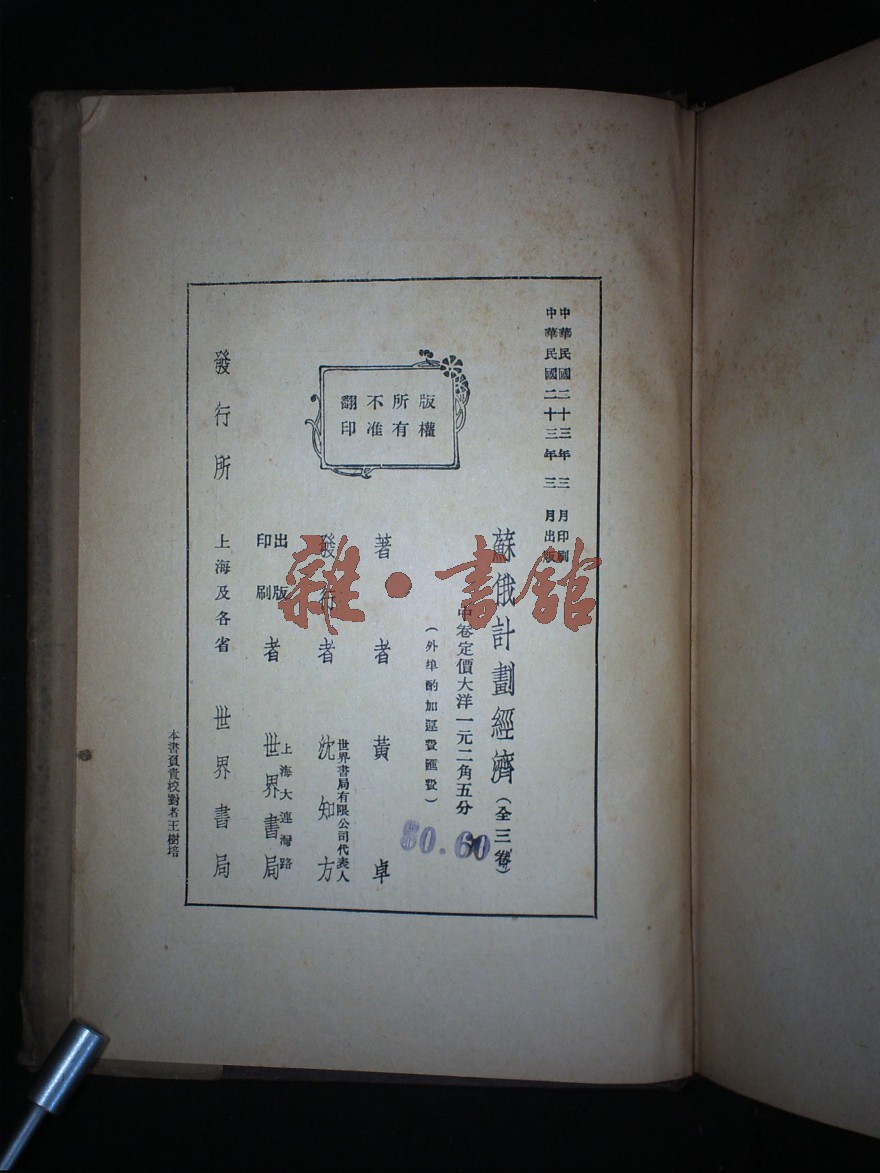 中華民國二十三年三月印刷
中華民國二十三年三月出版
蘇俄計劃經濟(全三卷)
中卷定價大洋一元二角五分
(外埠酌加運費匯費)
80.60
版權
所有
不准
翻印
著者 黃卓
發行者 世界書局有限公司代表人
沈知方
出版
印刷
者 上海大連灣路
世界書局
發行所 上海及各省 世界書局
本書負責校對者王樹培
雜·書館